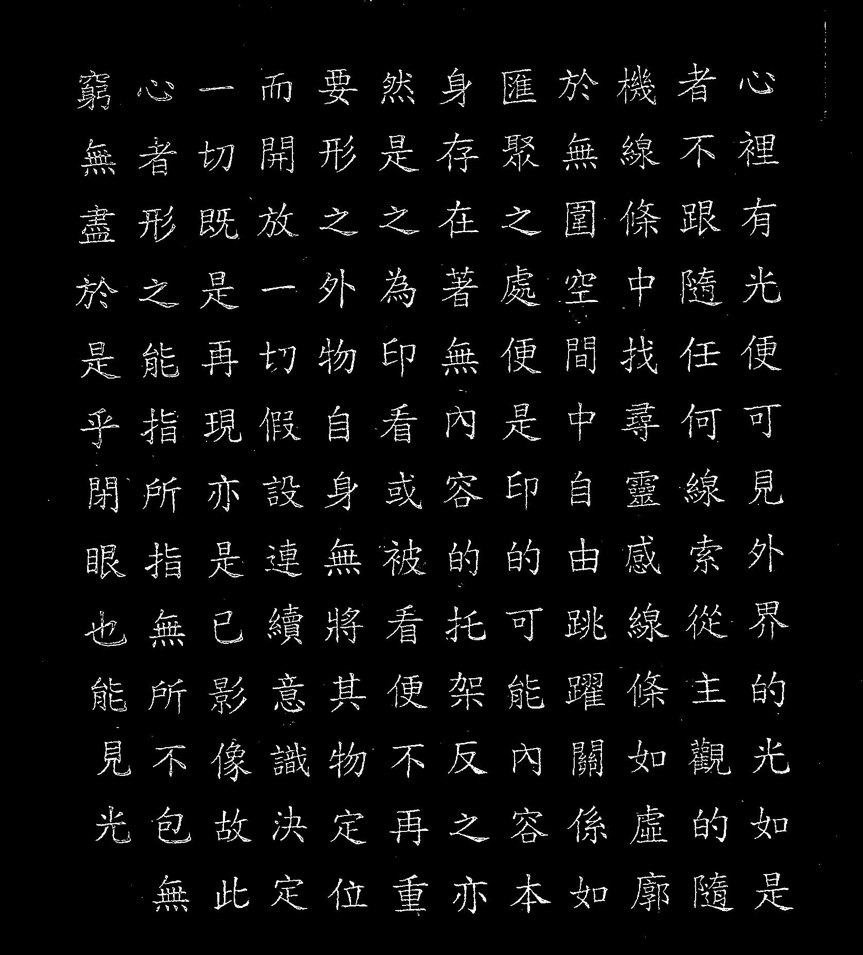 心裡有光便可見外界的光如是
者不跟隨任何線索從主觀的隨
機線條中找尋靈感線條如虛廓
於無圍空間中自由跳躍關係如
匯聚之處便是印的可能內容本
身存在著無內容的托架反之亦
然是之為印看或被看便不再重
要形之外物自身無將其物定位
而開放一切假設連續意識決定
一切既是再現亦是已影像故此
心者形之能指所指無所不包無
窮無盡於是乎閉眼也能見光